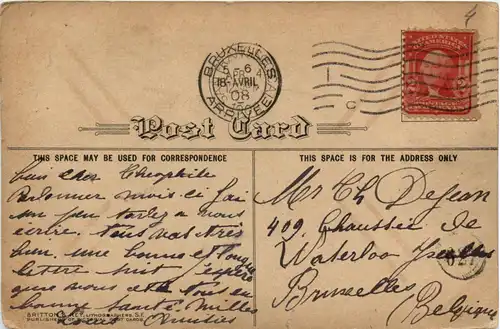 BRUXELLES
5-6
18 AVRIL
08
ARRIVEE
UNITED STATES
OF AMERICA
Post Card
THIS SPACE MAY BE USED FOR CORRESPONDENCE
cher Theophile
Pardonner moi si j'ai
un peu tardez a vous
écrire. tous vas très
bien. une bonne et longue
lettre suit j'espère
que vous êtes tous en
bonne santé. Milles
Amitiés
BRITTON & REY, LITHOGRAPHERS, S.F.
PUBLISHERS OF PICTORIAL POST CARDS
THIS SPACE IS FOR THE ADDRESS ONLY
Mr Ch DeJean
409, Chaussée de
Waterloo Ixelles
Bruxelles
Belgique